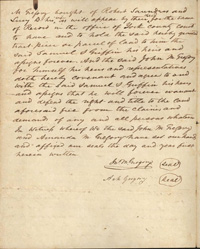 Mr Gregory bought of Robert Saunders and
Lucy his as will appear by their
of Record in the office of County Court
To have and to hold the said hereby
tract piece or parcel of land to him the
said Samuel S Griffin his heirs and
assigns forever. And the said John M Gregory
for himself his heirs and representatives
doth hereby covenant and agree to and
with the said Samuel S. Griffin his heirs
and assigns that he will forever warrant
and defend the right and title to the land
aforesaid free from the claims and
demand of any and all persons whatever
In Witness whereof We the said John M. Gregory
and Amanda M. Gregory have set our hand
and affixed our seals the day and year first
herein written
Jno M Gregory (seal)
A M Gregory (seal)